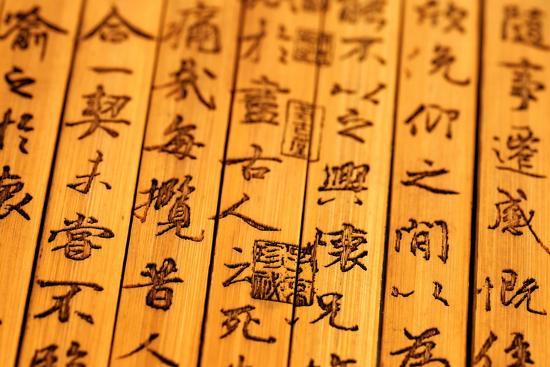 隨事遷感慨係
欣俛仰之間以為
能不以之興懷況
於盡古人云死
痛哉每攬昔人
合一契未嘗不臨
喻之於懷